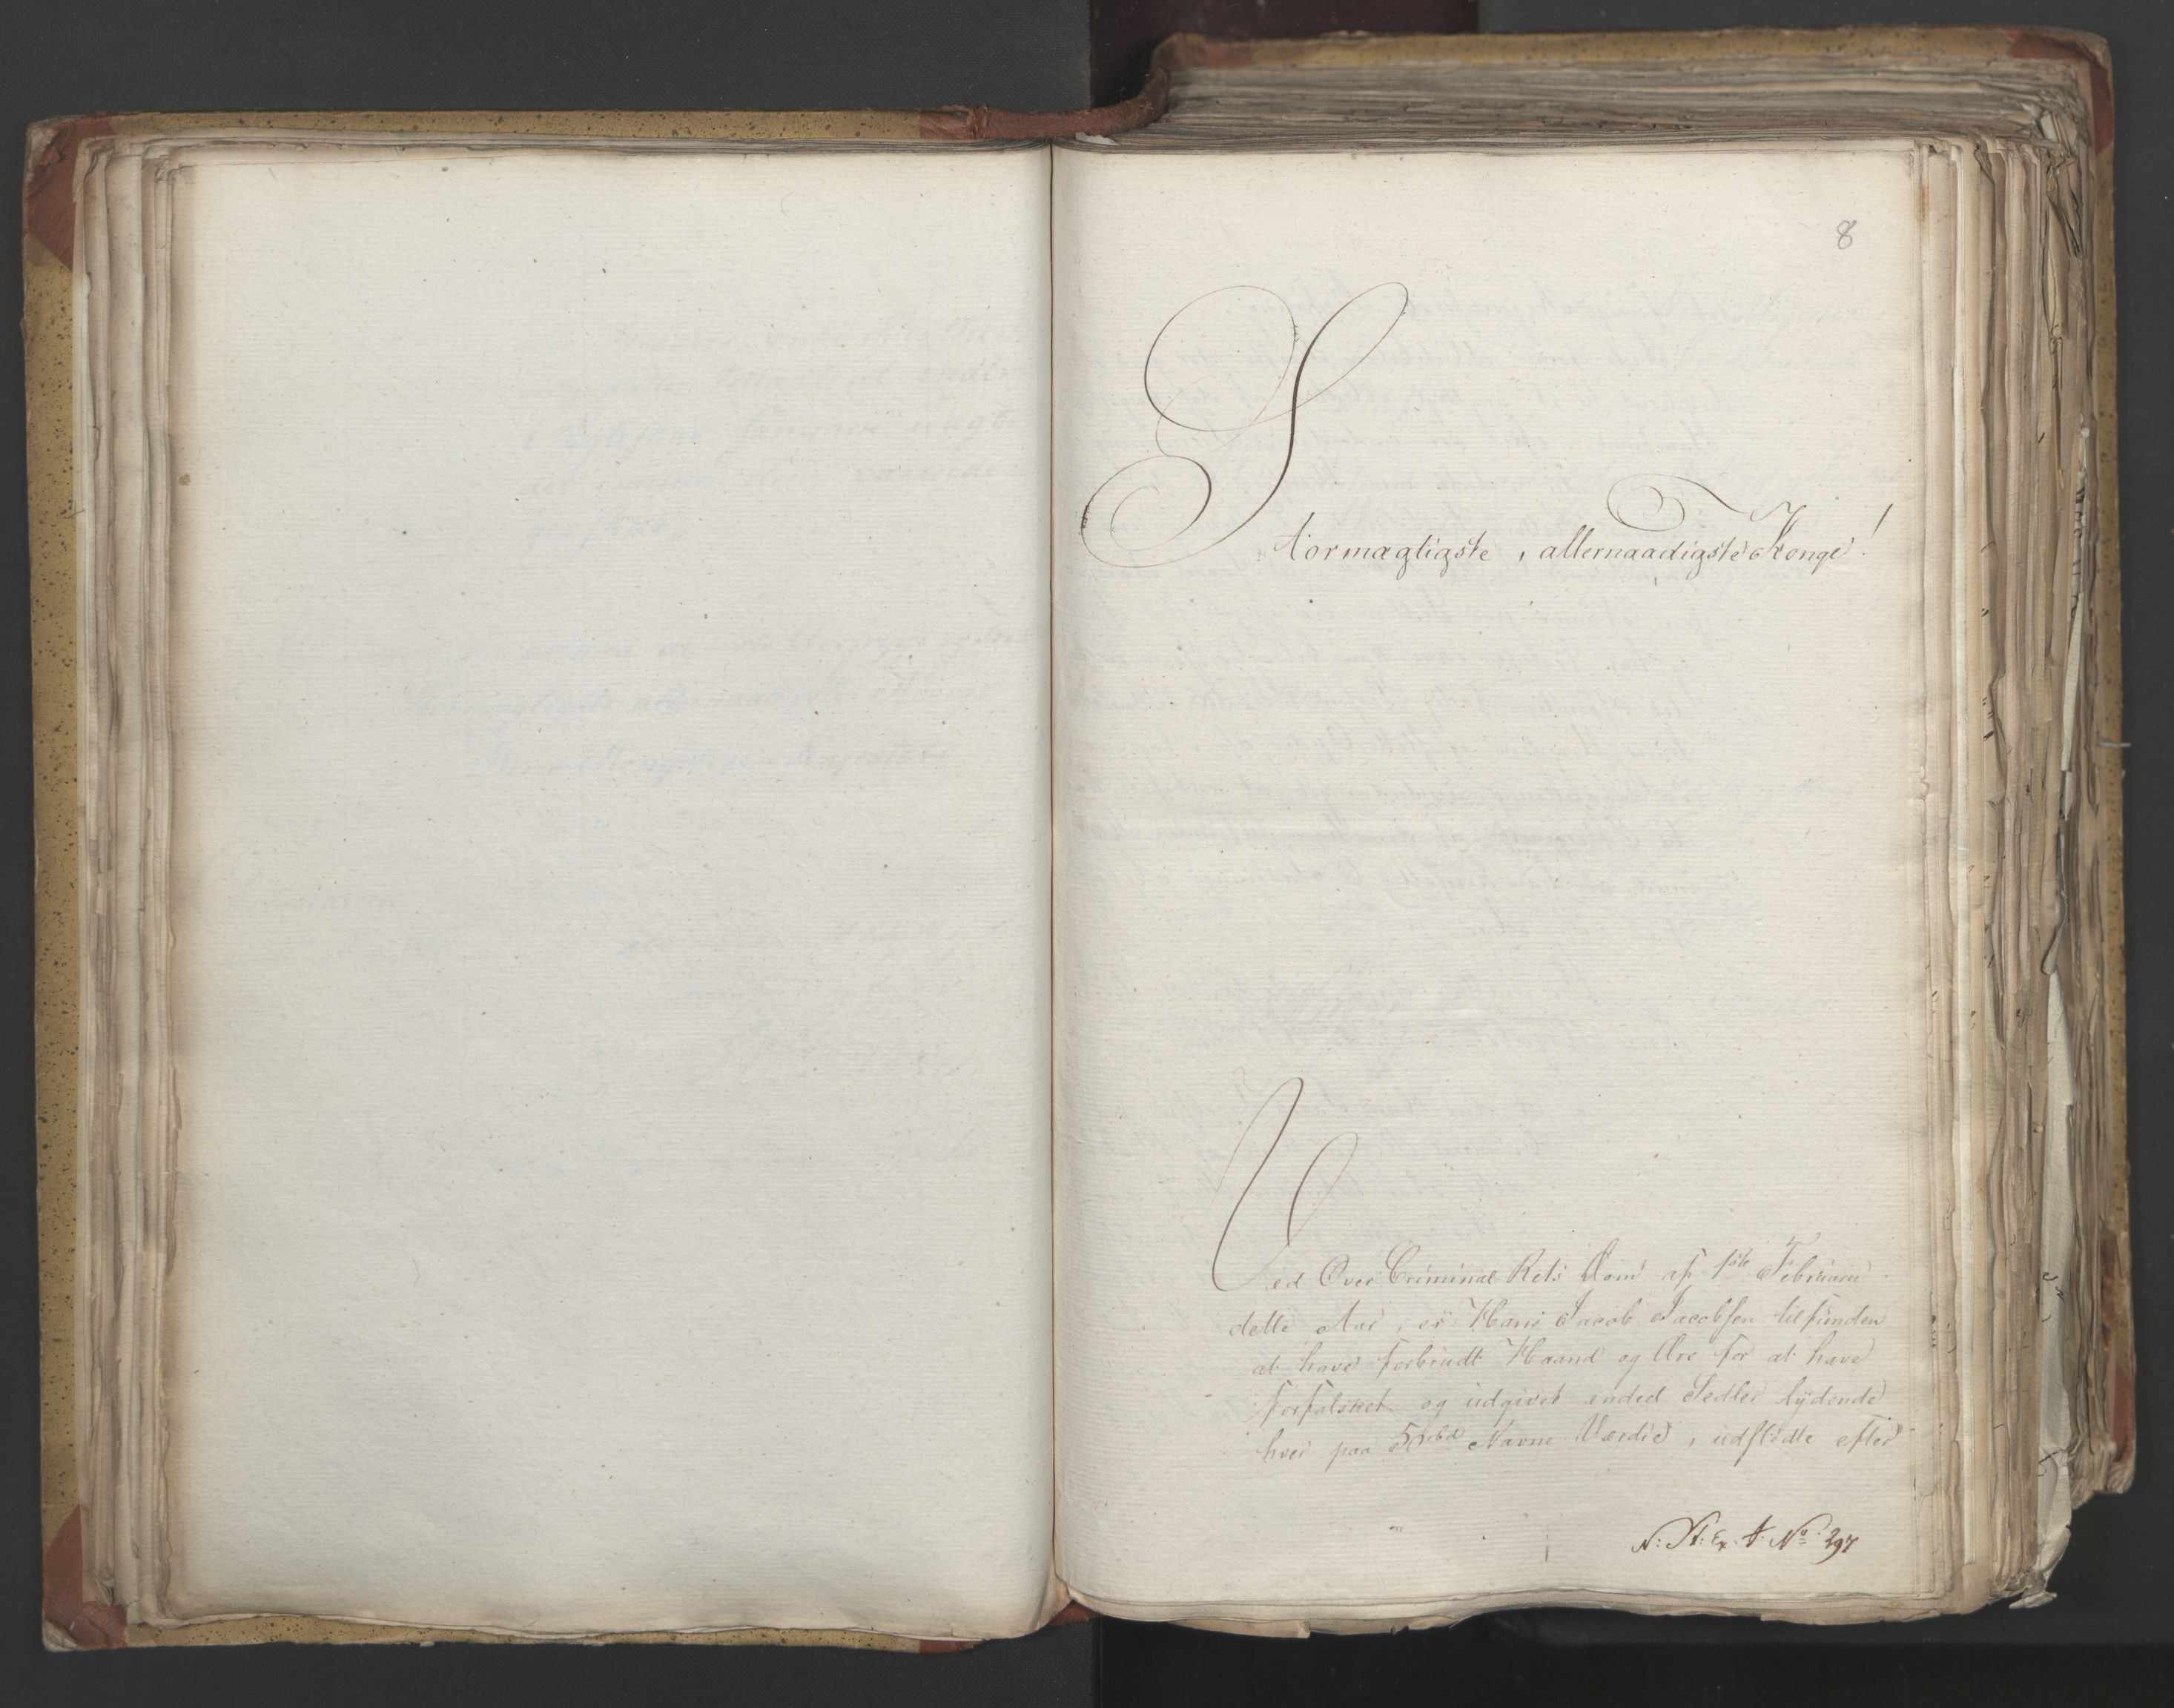 8
Stormægtigste, allernaadigste Konge!
Ved Over Criminal Rets Dom af 1ste Februarii
dette Aar, er Hans Jacob Jacobsen tilfunden
at have forbrudt Haand og Ære for at have
forfalsket og udgivet endeel Sedler lydende
hver paa 50 rbd Navne Værdie, udstædte efter
N: St: Ex. A: No 297